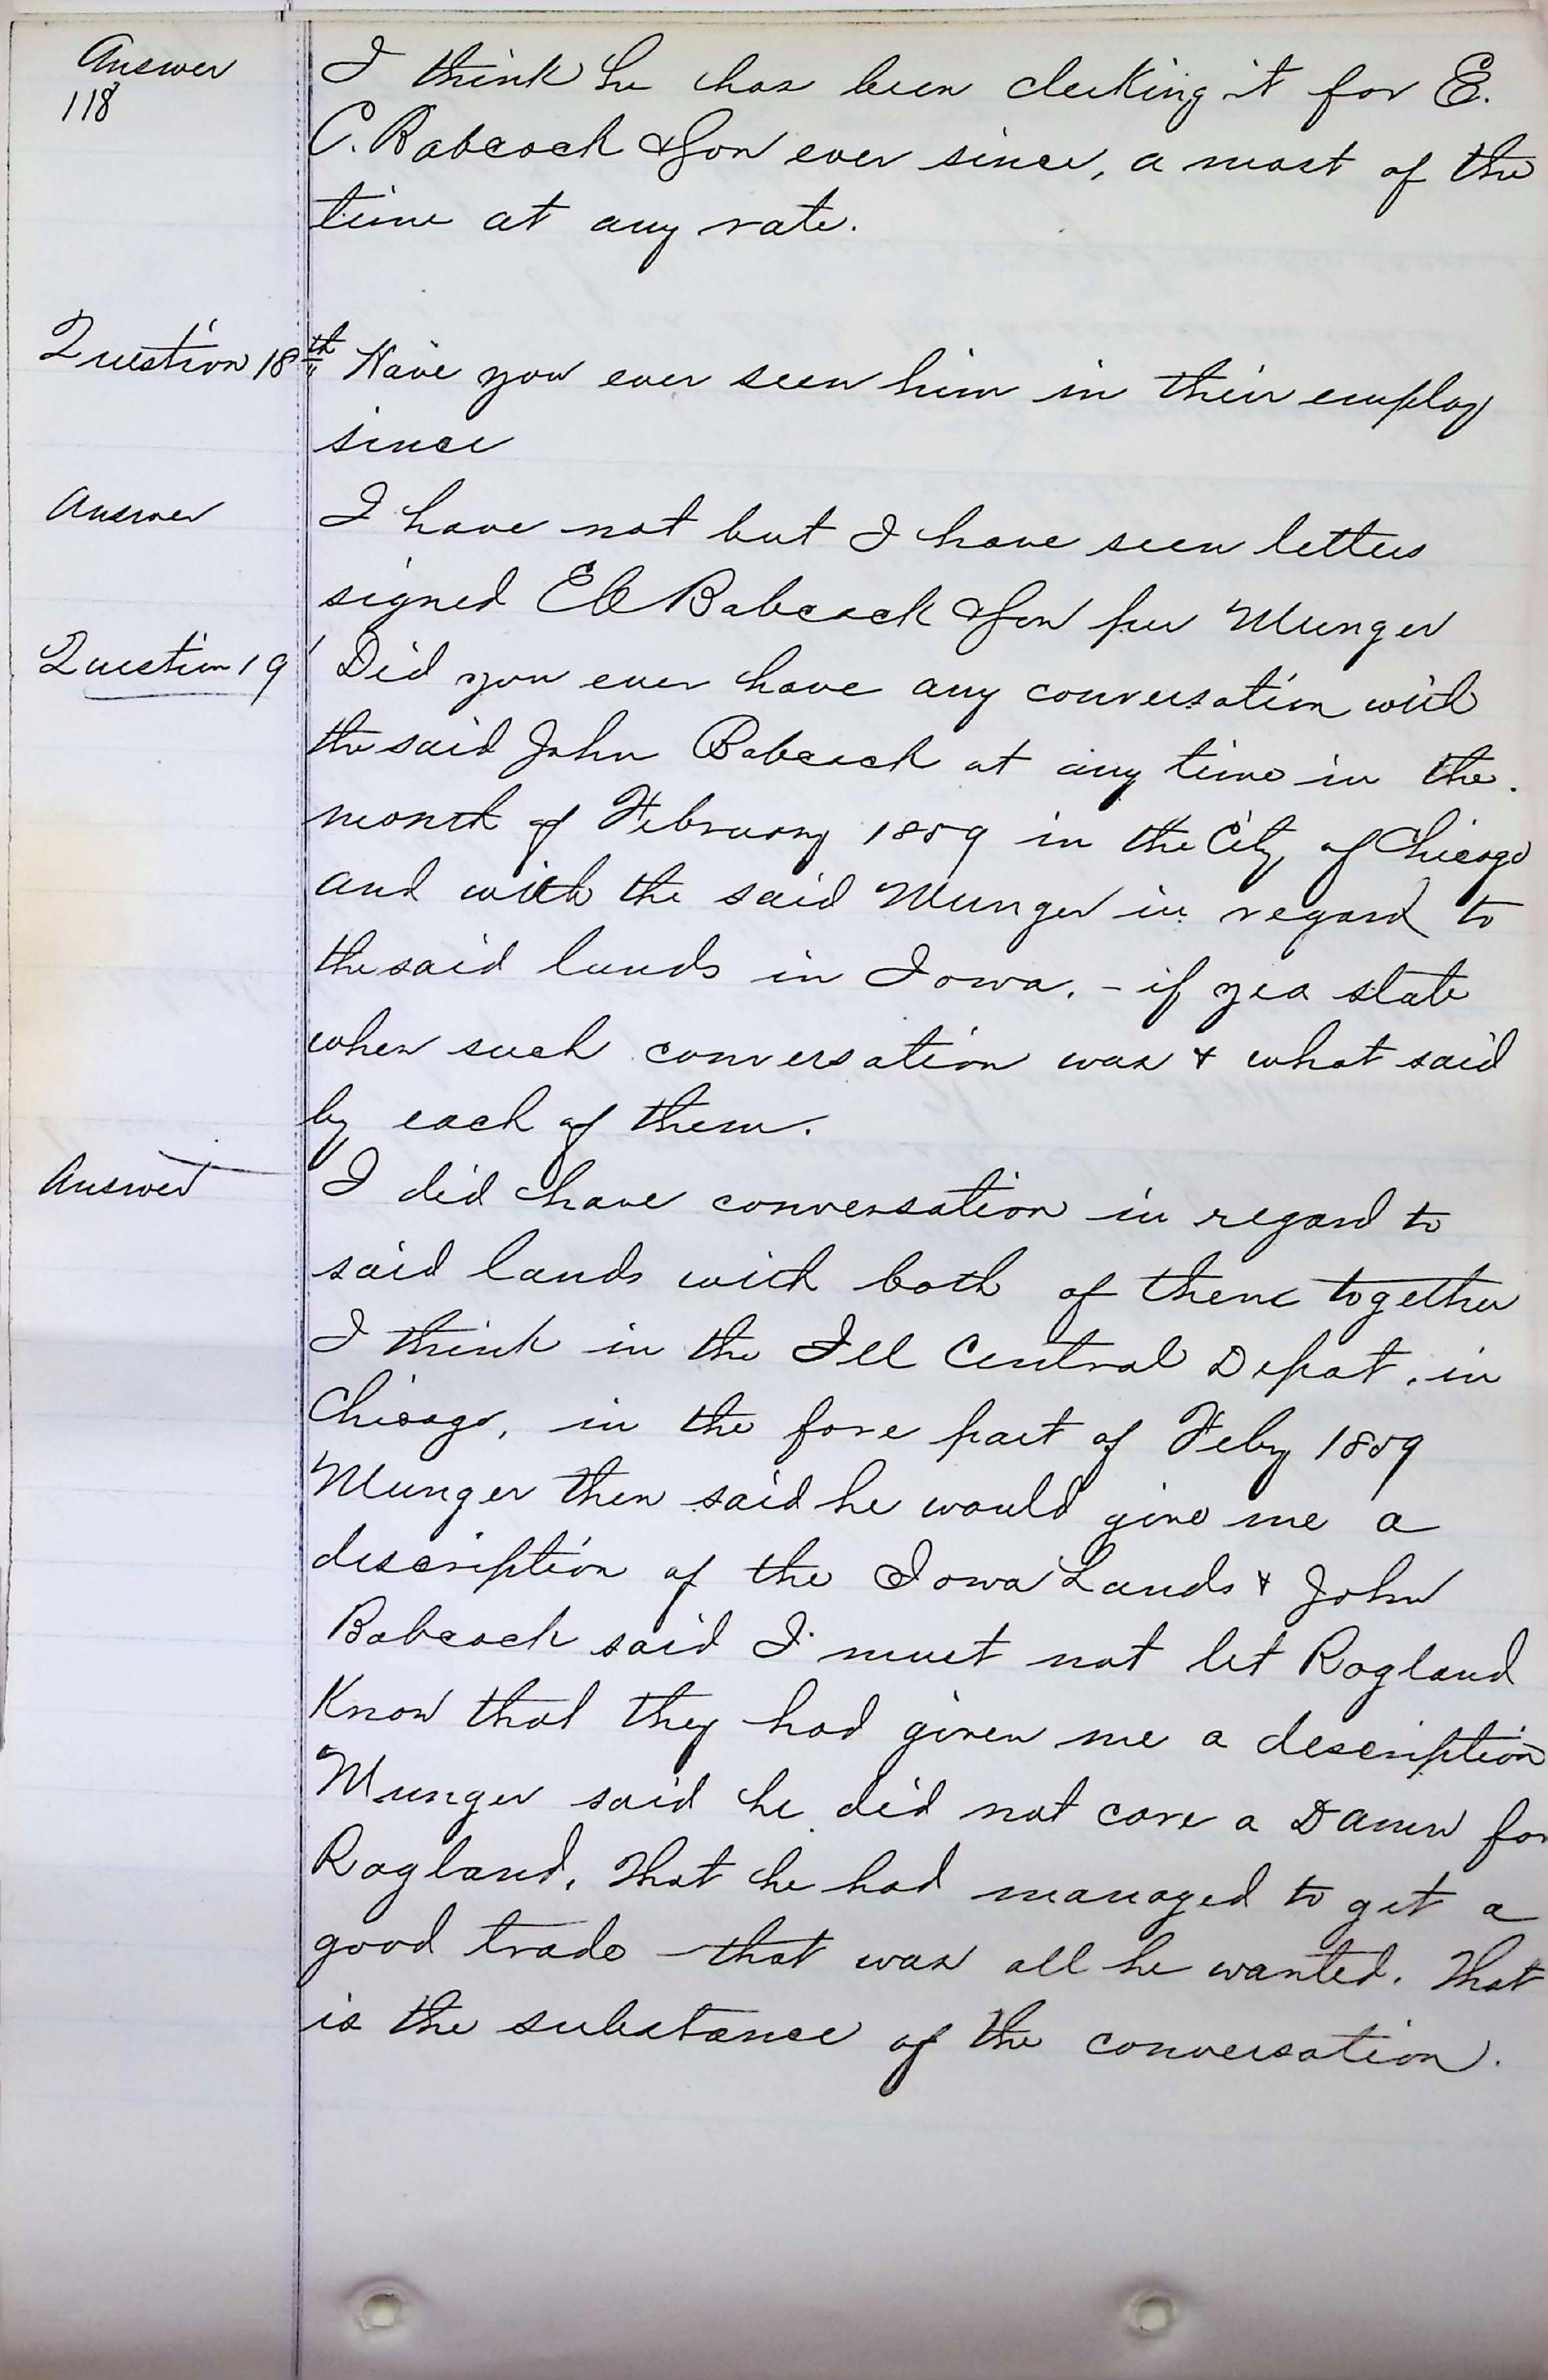 Answer I think he has been clerking it for E.
118
C. Babcock & Son ever since, a most of the
time at any rate.
Question 18th Have you ever seen him in their employ
since
Answer I have not but I have seen letters
signed E C Babcock & Son per Munger
Question 19 Did you ever have any conversation with
the said John Babcock at any time in the
month of February 1859 in the City of Chicago
and with the said Munger in regard to
the said lands in Iowa. - if yea state
when such conversation was & what said
by each of them.
Answer I did have conversation in regard to
said lands with both of them together
I think in the Ill Central Depot, in
Chicago, in the fore part of Feby 1859
Munger then said he would give me a
description of the Iowa Lands & John
Babcock said I must not let Ragland
Know that they had given me a description
Munger said he did not care a Damn for
Ragland, that he had managed to get a
good trade that was all he wanted. That
is the substance of the conversation.